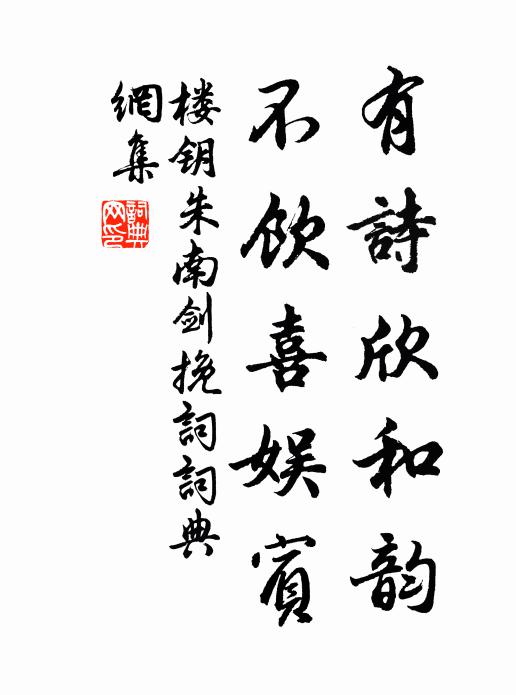 有詩欣和韵
不飲喜娱賓
楼钥朱南剑挽詞詞典
網集
詞典
网印